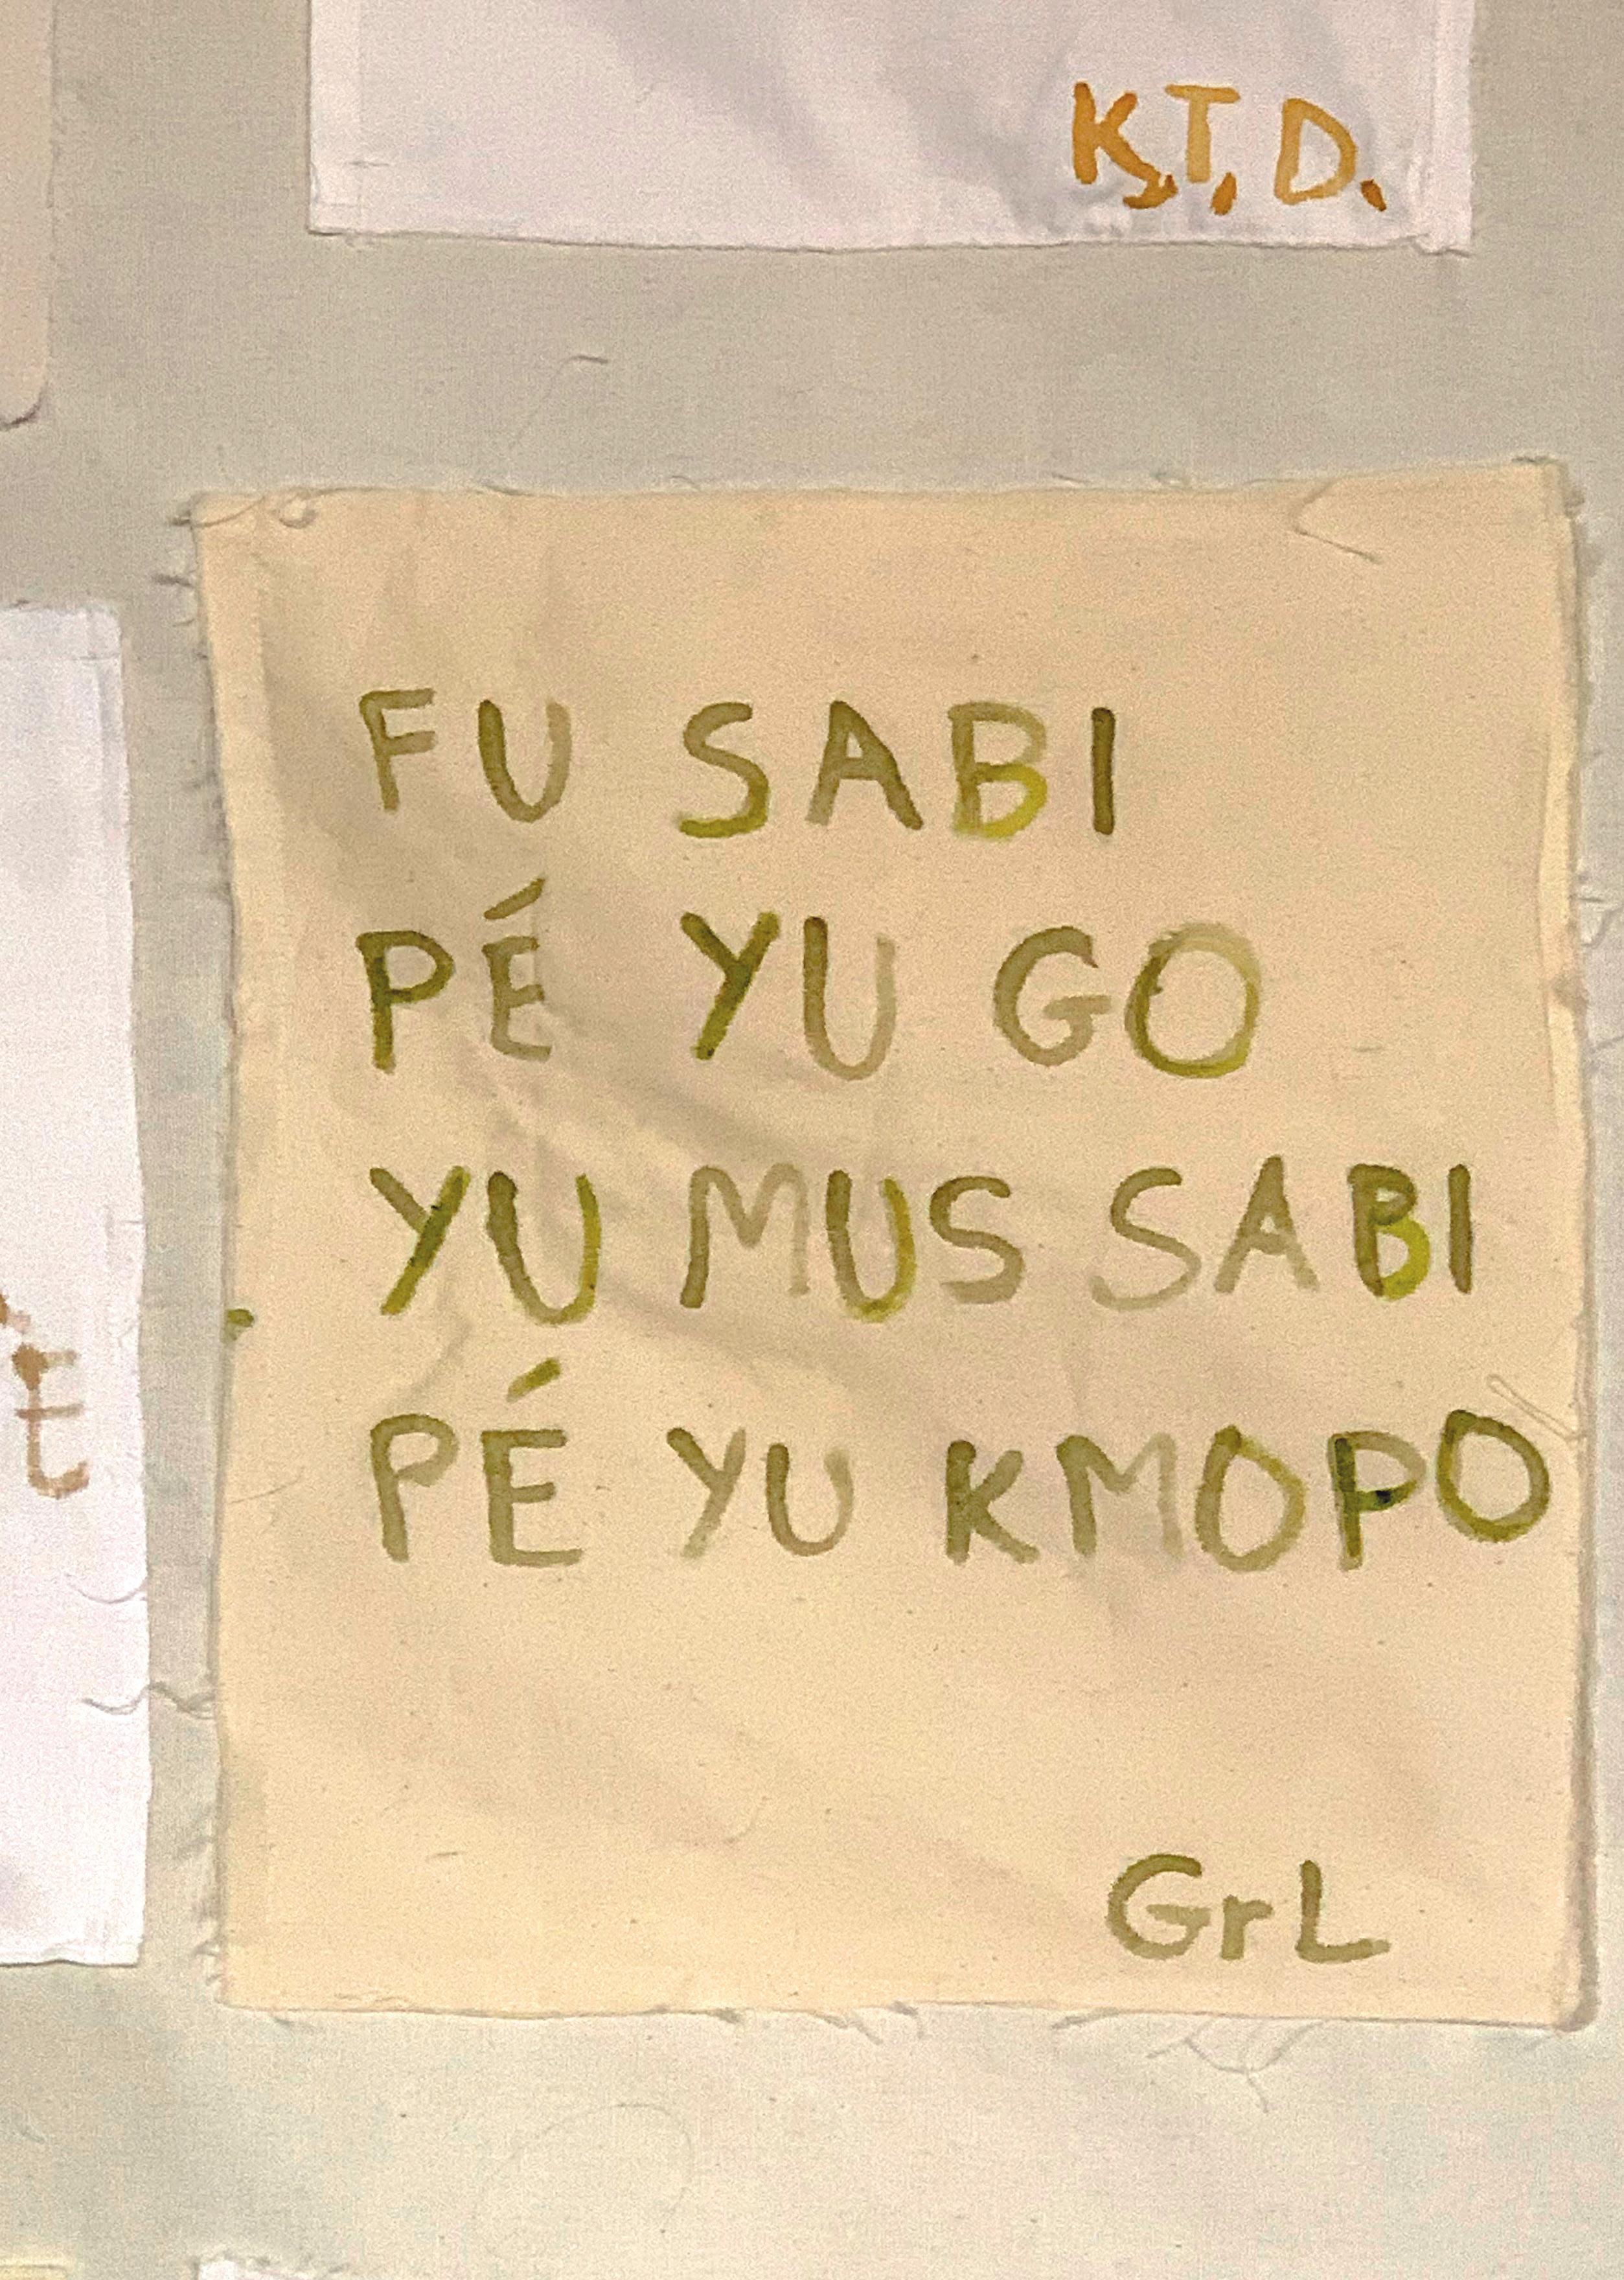 K.T.D.
FU SABI
PÉ YU GO
YU MUS SABI
PÉ YU KMOPO
GrL